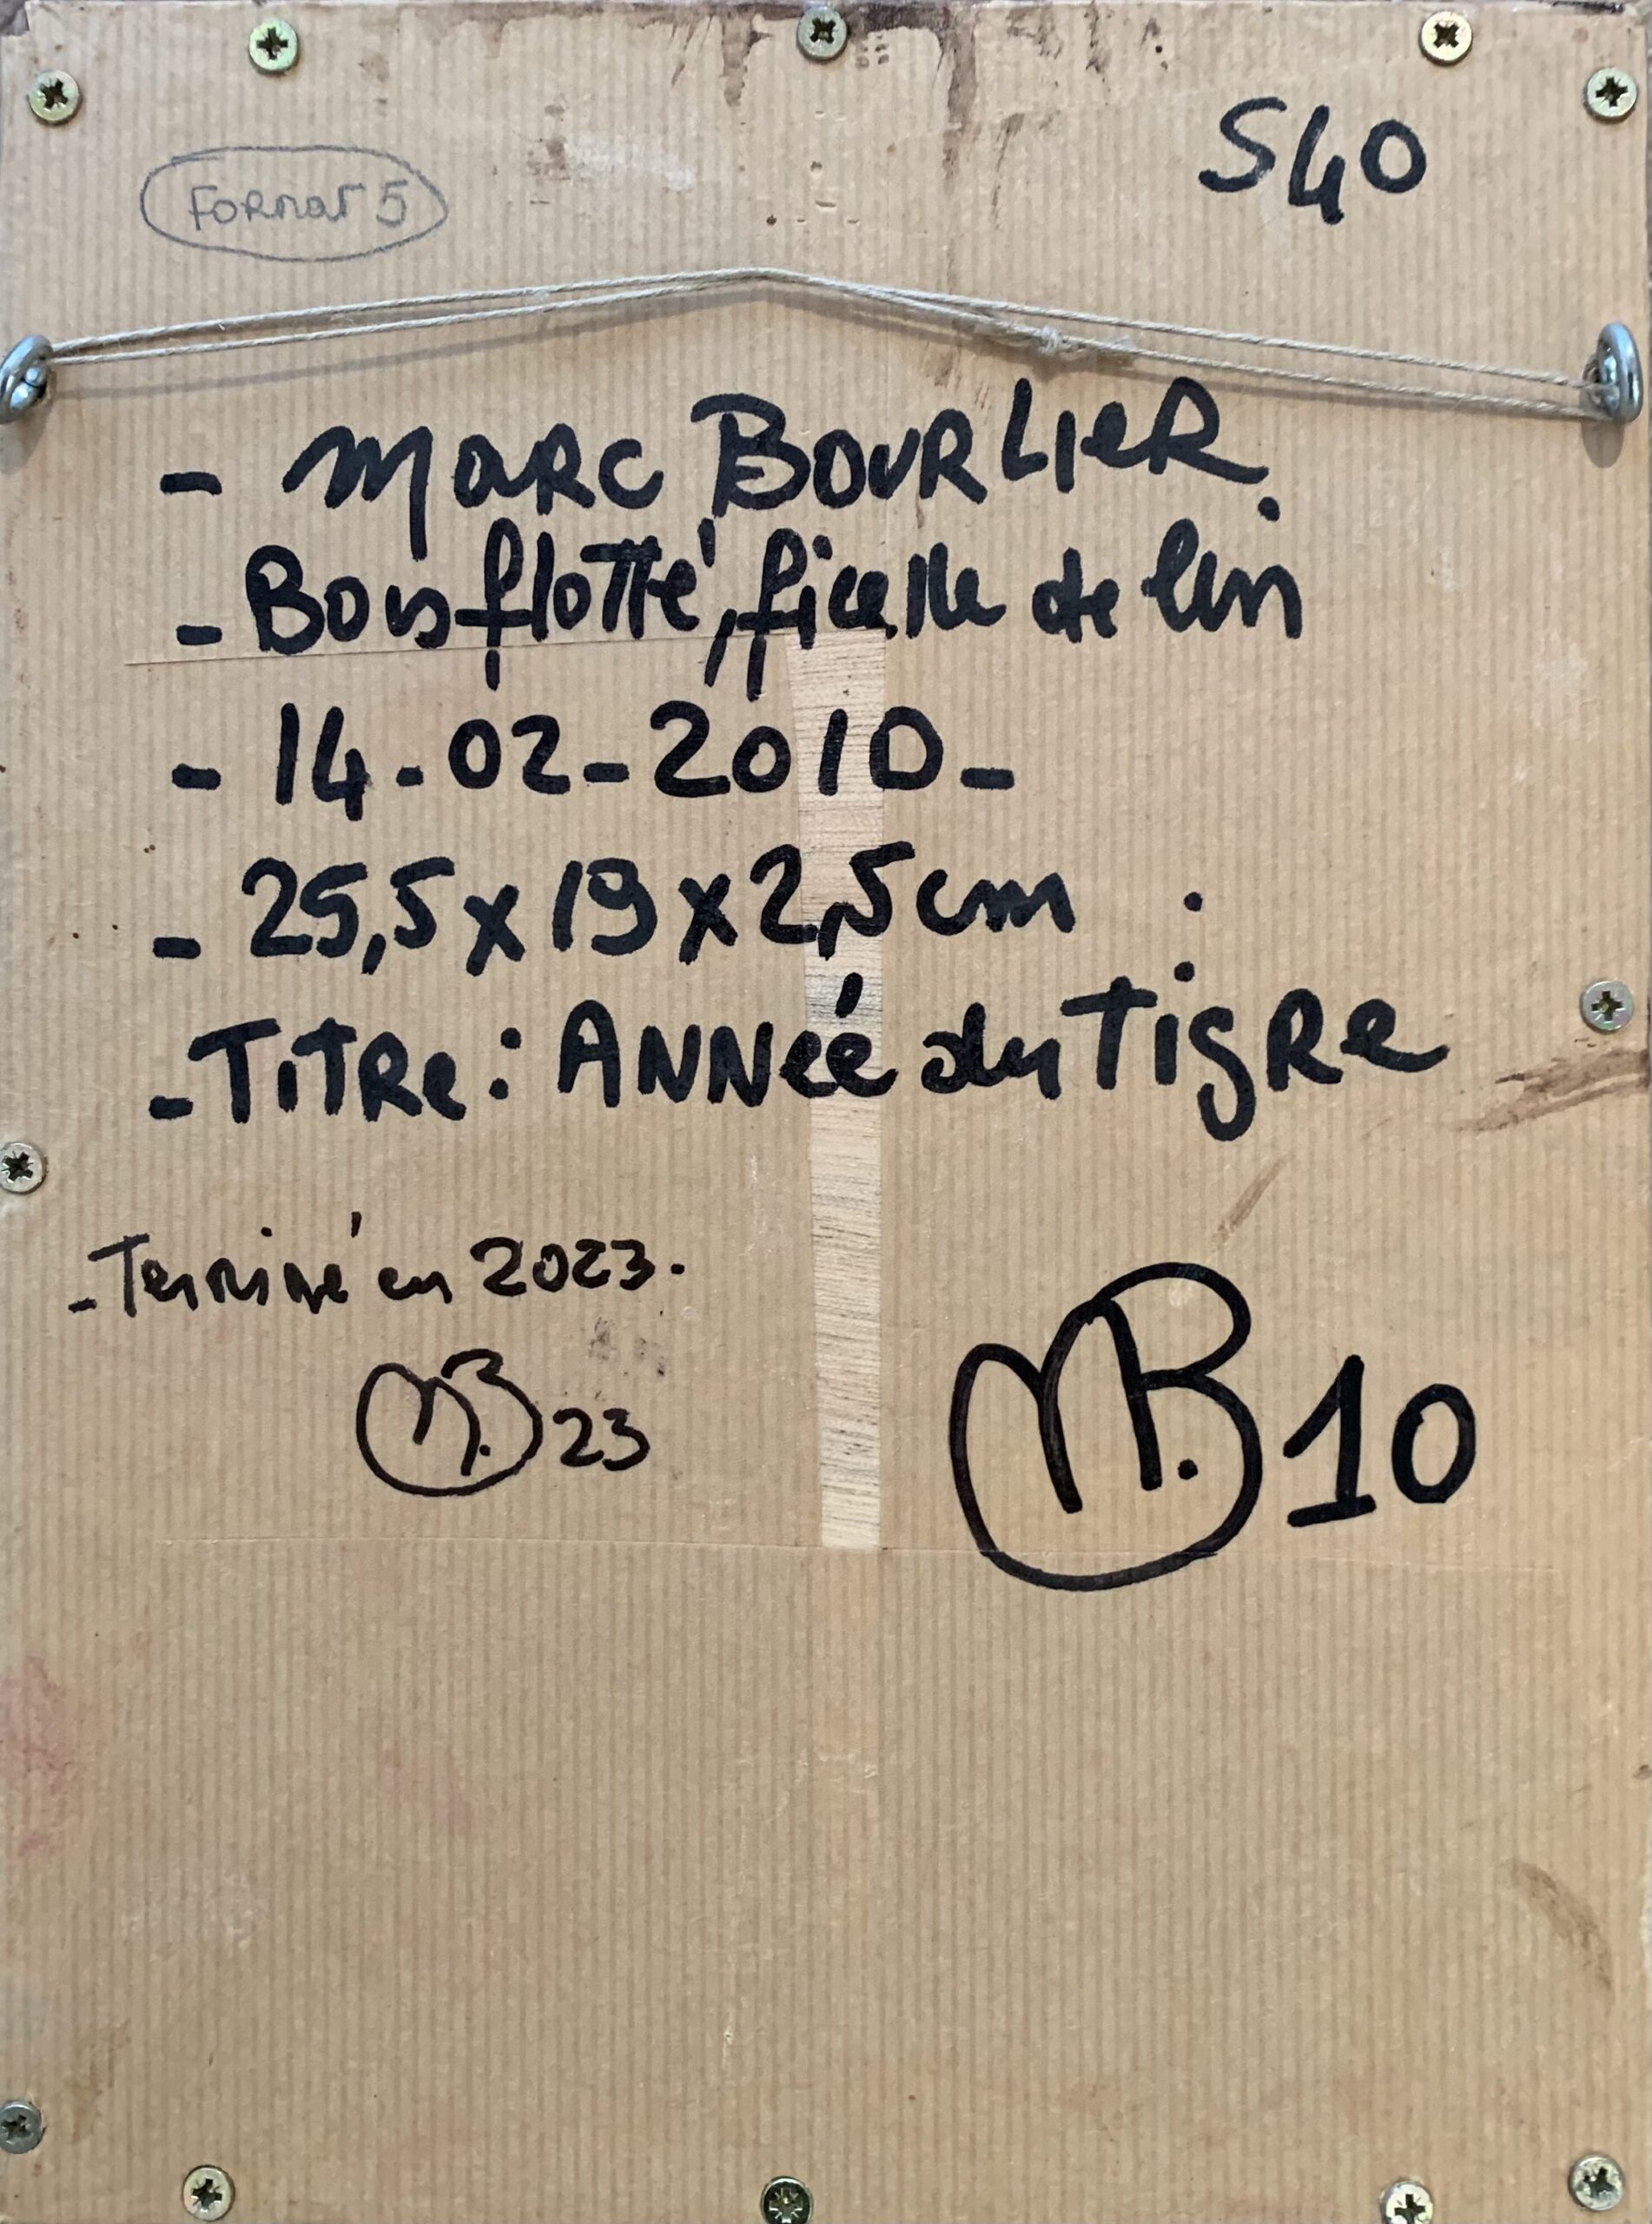 S40
Format 5
- Marc BOURLIER.
- Bois flotté, ficelle de lin
- 14-02-2010-
- 25,5 x 19 x 2,5 cm .
- Titre : ANNée du Tigre
- Terminé en 2023.
MB. 23
MB. 10